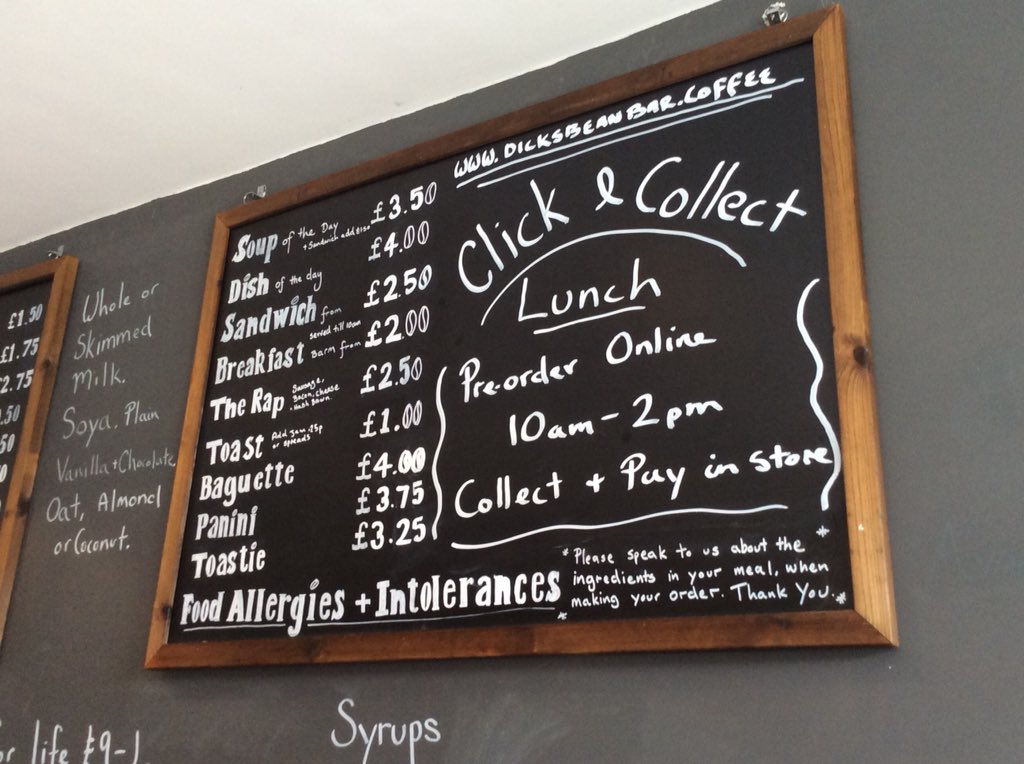 £1.50
£1.75
£2.75
.50
Whole or
Skimmed
Milk.
Soya. Plain
Vanilla + Chocolate
Oat, Almond
or Coconut.
Soup of the Day £3.50
Dish of the day £4.00
Sandwich from £2.50
Breakfast served till 10am Barm from £2.00
The Rap Sausage, Bacon, Cheese £2.50
Toast Add jam or spreads £1.00
Baguette £4.00
Panini £3.75
Toastie £3.25
WWW.DICKSBEANBAR.COFFEE
Click & Collect
Lunch
Pre-order Online
10am - 2pm
Collect + Pay in store
Food Allergies + Intolerances
* Please speak to us about the
ingredients in your meal, when
making your order. Thank You. *
life £9-
Syrups